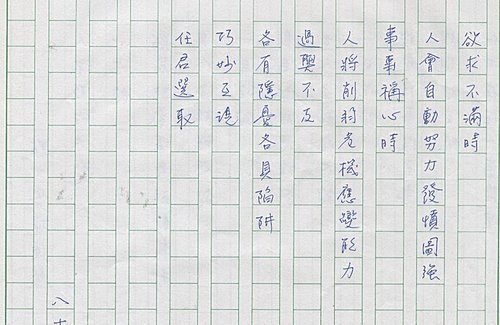 欲求不滿時
人會自動努力發憤圖強
事事稱心時
人將削弱危機應變能力
過與不及
各有隱憂各具陷阱
巧妙互
任君選取
八十